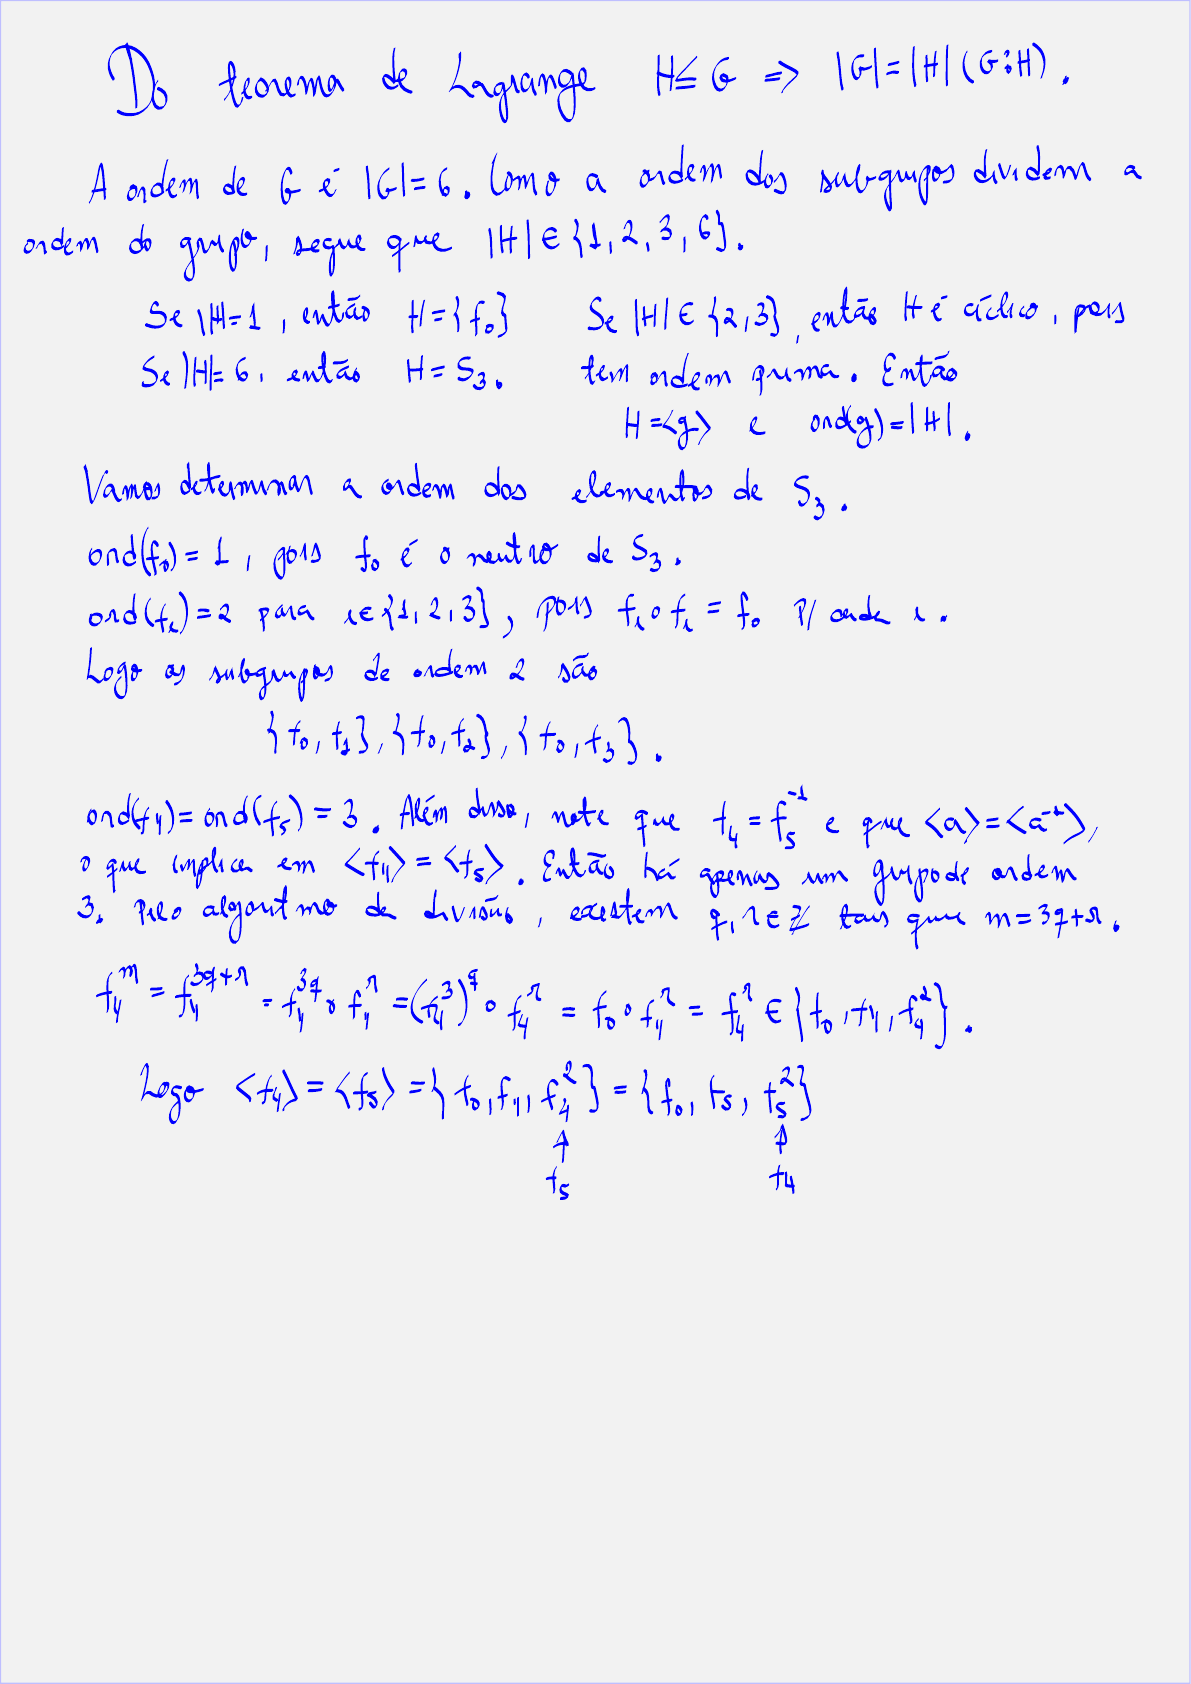 Do teorema de Lagrange H≤G ⇒ |G|=|H|(G:H).
A ordem de G é |G|=6. Como a ordem dos subgrupos dividem a
ordem do grupo, segue que |H| ∈ {1, 2, 3, 6}.
Se |H|=1, então H={f₀}
Se |H|=6, então H=S₃.
Se |H| ∈ {2,3}, então H é cíclico, pois
tem ordem prima. Então
H=<g> e ord(g)=|H|.
Vamos determinar a ordem dos elementos de S₃.
ord(f₀)=1, pois f₀ é o neutro de S₃.
ord(fᵢ)=2 para i∈{1,2,3}, pois fᵢ∘fᵢ = f₀ p/ cada i.
Logo os subgrupos de ordem 2 são
{f₀, f₁}, {f₀, f₂}, {f₀, f₃}.
ord(f₄)=ord(f₅)=3. Além disso, note que f₄=f₅⁻¹ e que <a>=<a⁻¹>,
o que implica em <f₄>=<f₅>. Então há apenas um grupo de ordem
3. Pelo algoritmo da divisão, existem q,r∈ℤ tais que m=3q+r.
f₄^m = f₄^{3q+r} = f₄^{3q}∘f₄^r = (f₄³)^q∘f₄^r = f₀∘f₄^r = f₄^r ∈ {f₀, f₄, f₄²}.
Logo <f₄>=<f₅>={f₀, f₄, f₄²}={f₀, f₅, f₅²}
↑ ↑
f₅ f₄